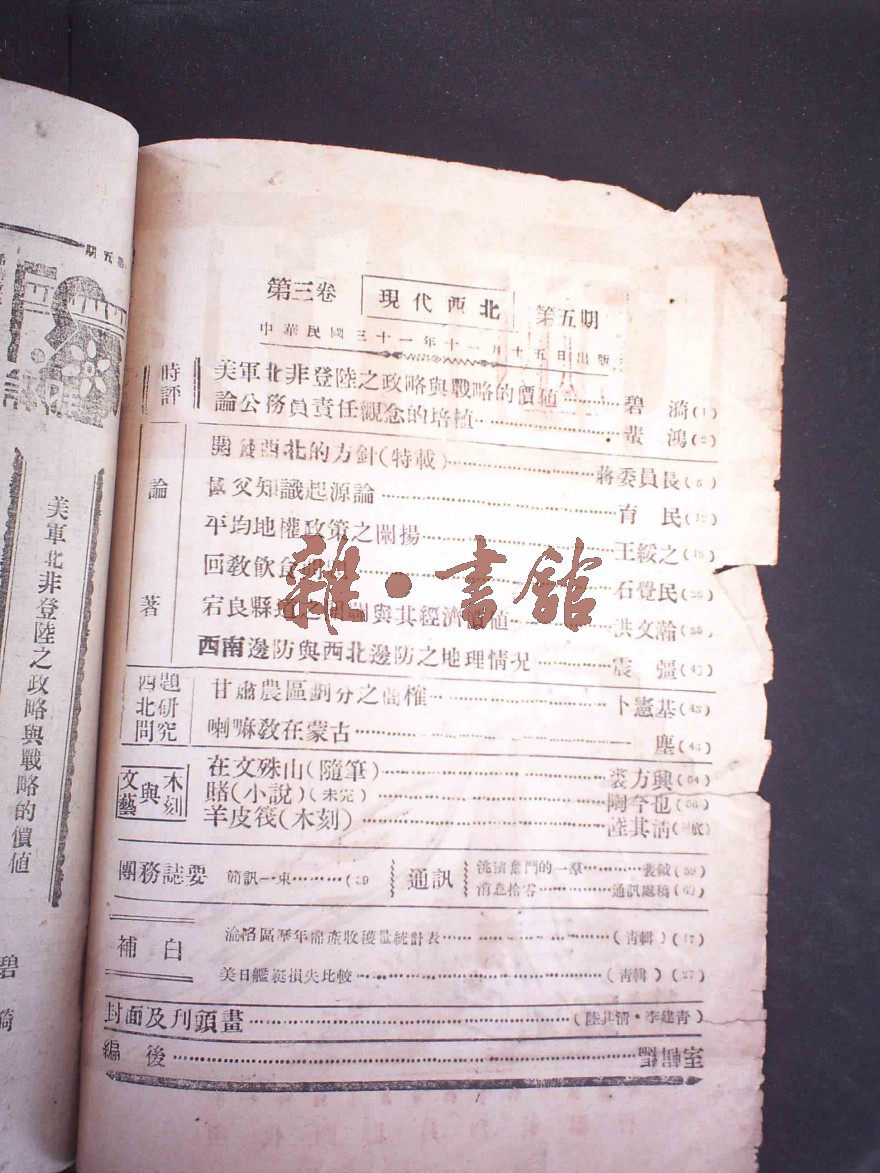 第三卷 現代西北 第五期
中華民國三十一年十一月十五日出版
時評
美軍北非登陸之政略與戰略的價值………碧漪(1)
論公務員責任觀念的培植………蜚鴻(2)
論著
開發西北的方針(特載)………蔣委員長(5)
國父知識起源論………育民(12)
平均地權政策之闡揚………王綏之
回教飲食………石覺民
宕良縣道之開闢與其經濟價值………洪文瀚
西南邊防與西北邊防之地理情況………震彊
西北問題研究
甘肅農區劃分之商榷………卜憲基(43)
喇嘛教在蒙古………塵
文藝與木刻
在文殊山(隨筆)………裘方興(54)
賭(小說)(未完)………剛今也(56)
羊皮筏(木刻)………陸其清
團務誌要 簡訊一束………(39
通訊
洮濱奮鬥的一羣………裴鉞(59)
消息拾零………通訊處稿
補白
歷年棉產收穫量統計表………(青輯)(17)
美日艦艇損失比較………(青輯)(27)
封面及刊頭畫………(陸其清·李建青)
編後………編輯室
雜·書館
第五期
美軍北非登陸之政略與戰略的價值
碧漪